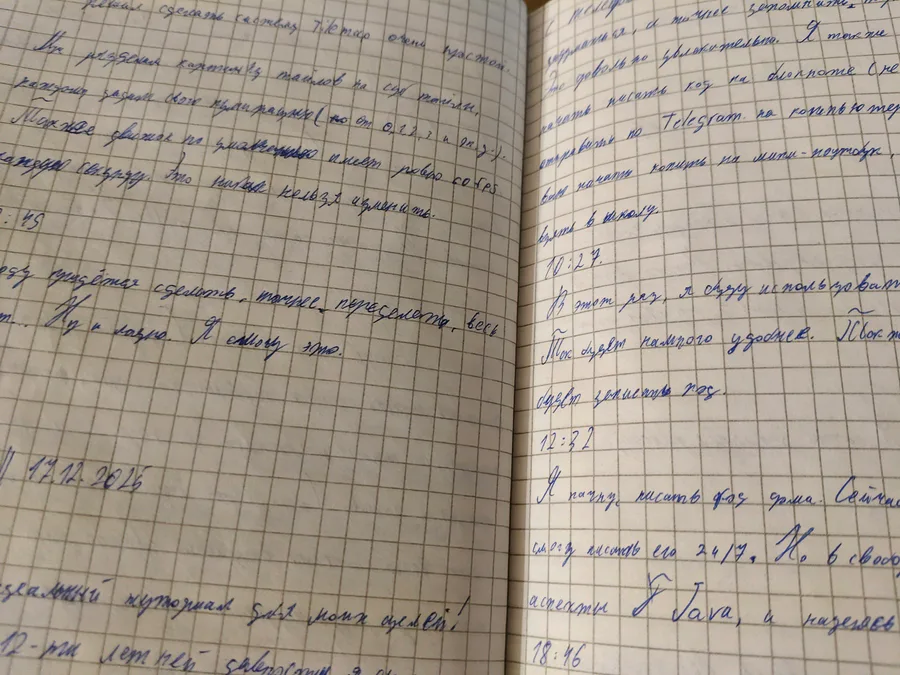 решил сделать систему TileMap очень простой.
Мы разделим картинку тайлов на сам тайлы.
каждому задам свою нумерацию ( от 0, 1, 2, 3 и дп.).
Также движок по умолчанию имеет ровно 60 fps
каждую секунду. Это нельзя изменить.
: 49
придётся сделать, точнее, переделать, весь
Ну и ладно. Я смогу это.
17.12.2025
идеальный туториал для моих целей!
12-ти летней давности
С телефо
и точнее запомнить.
довольно увлекательно. Я также
начать писать код на блокноте (не
отправить по Telegram на компьютер
начать копить на мини-ноутбук,
взять в школу.
10:27.
В этот раз, я буду использовать
Так будет намного удобнее. Так
будет записать код.
12:32
Я начну писать код дома. Сейчас
смогу писать его 24/7. Но в свобод
аспекты Java, и надеюсь
18:46